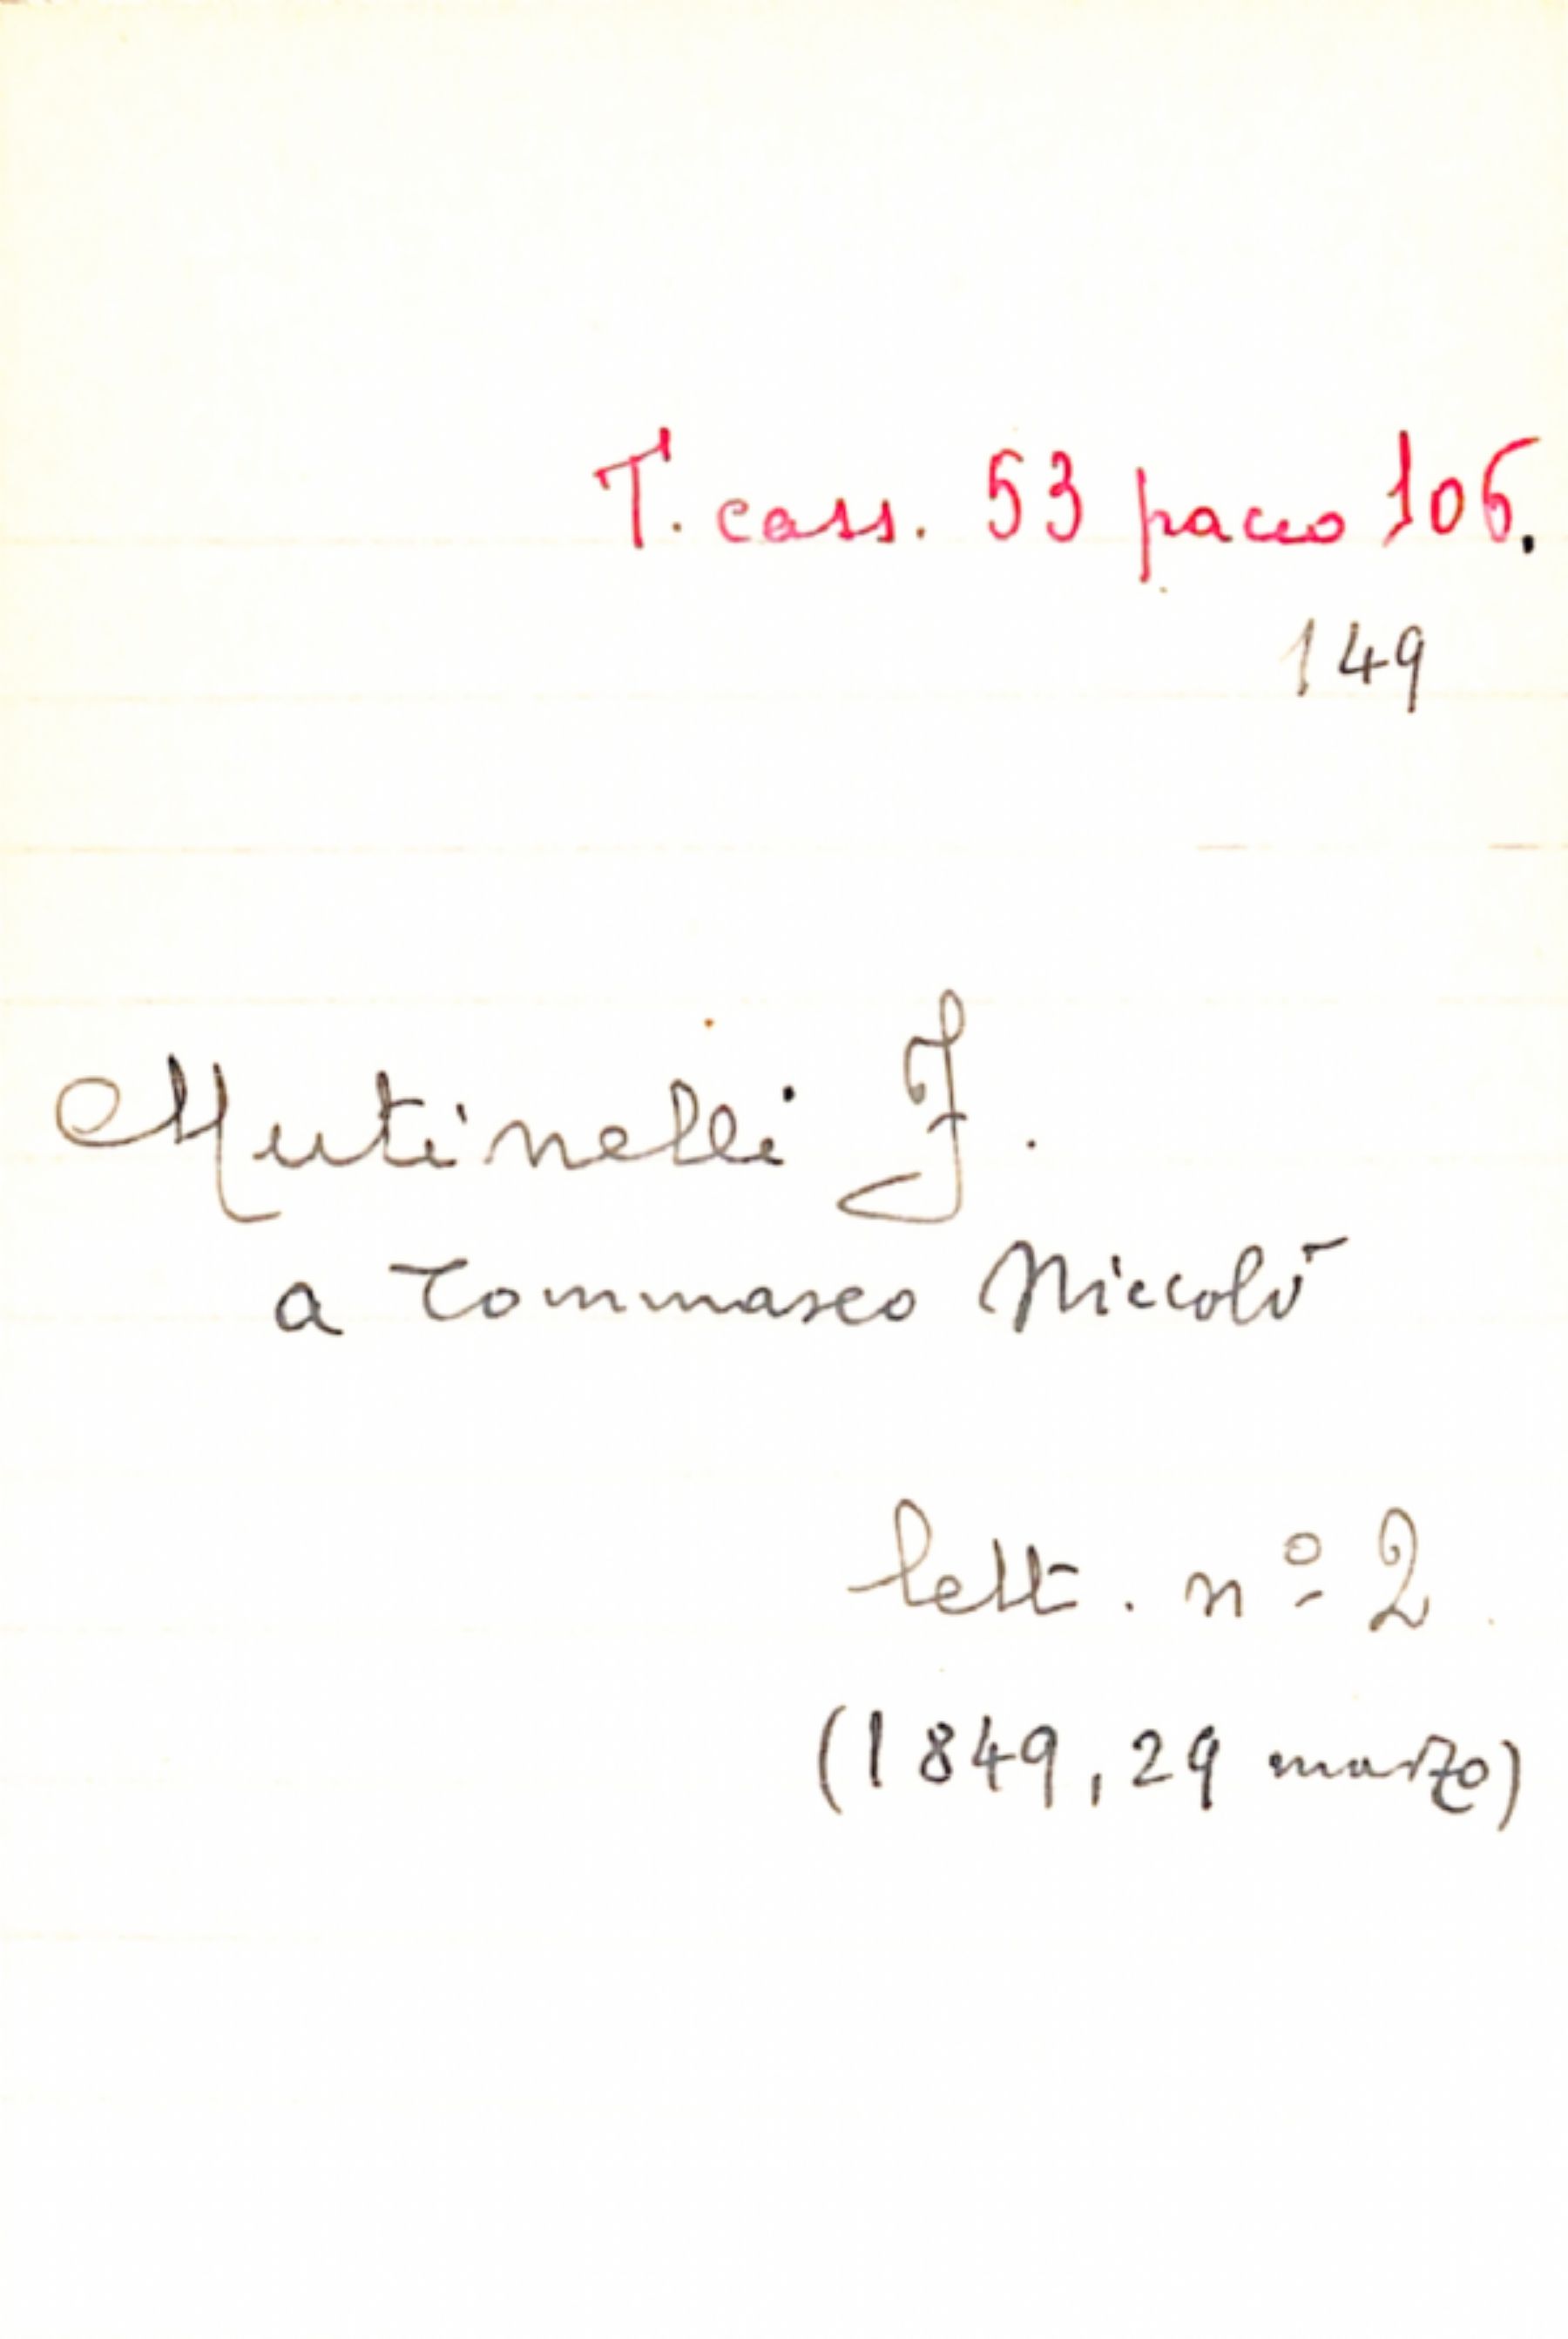 T. cass. 53 pacco 106.
149
Mutinelli F.
a Tommaseo Niccolò
lett. nº 2
(1849, 29 marzo)